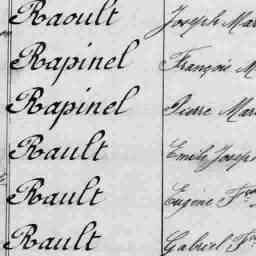 Raoult Joseph Mar
Rapinel François M
Rapinel Pierre Mar
Rault Emile Joseph
Rault Eugène Fᶜᵒⁱˢ
Rault Gabriel